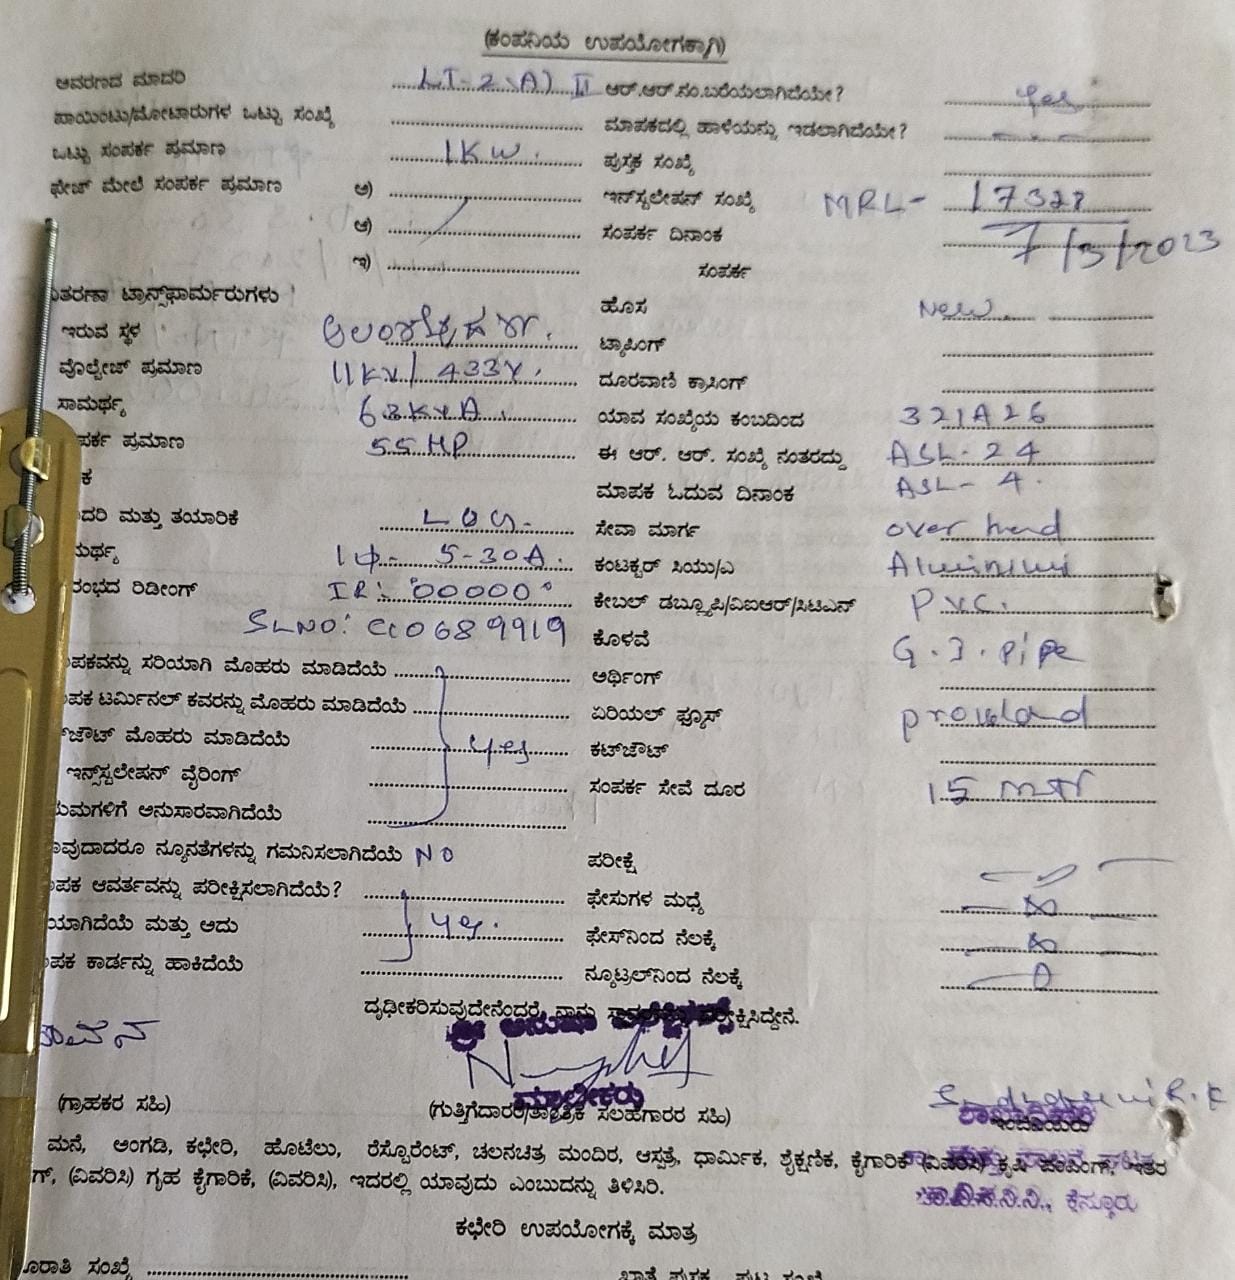 (ಕಂಪನಿಯ ಉಪಯೋಗಕ್ಕಾಗಿ)
ಆವರಣದ ಮಾದರಿ LT-2(A) II ಆರ್.ಆರ್.ನಂ.ಬರೆಯಲಾಗಿದೆಯೇ? Yes
ಪಾಯಿಂಟು/ಮೋಟಾರುಗಳ ಒಟ್ಟು ಸಂಖ್ಯೆ ಮಾಪಕದಲ್ಲಿ ಹಾಳೆಯನ್ನು ಇಡಲಾಗಿದೆಯೇ?
ಒಟ್ಟು ಸಂಪರ್ಕ ಪ್ರಮಾಣ 1KW. ಪುಸ್ತಕ ಸಂಖ್ಯೆ
ಫೇಜ್ ಮೇಲೆ ಸಂಪರ್ಕ ಪ್ರಮಾಣ ಅ) ಇನ್‌ಸ್ಟಲೇಷನ್ ಸಂಖ್ಯೆ MRL- 17328
ಆ) ಸಂಪರ್ಕ ದಿನಾಂಕ 7/3/2023
ಇ) ಸಂಪರ್ಕ
ತರಣಾ ಟ್ರಾನ್ಸ್‌ಫಾರ್ಮರುಗಳು ಹೊಸ New
ಇರುವ ಸ್ಥಳ ಟ್ಯಾಪಿಂಗ್
ವೊಲ್ಟೇಜ್ ಪ್ರಮಾಣ 11KV/433V. ದೂರವಾಣಿ ಕ್ರಾಸಿಂಗ್
ಸಾಮರ್ಥ್ಯ 63KVA. ಯಾವ ಸಂಖ್ಯೆಯ ಕಂಬದಿಂದ 321A26
ಪರ್ಕ ಪ್ರಮಾಣ 55HP ಈ ಆರ್. ಆರ್. ಸಂಖ್ಯೆ ನಂತರದ್ದು ASL-24
ಕ ಮಾಪಕ ಓದುವ ದಿನಾಂಕ ASL-4.
ದರಿ ಮತ್ತು ತಯಾರಿಕೆ ಸೇವಾ ಮಾರ್ಗ over head
ಮರ್ಥ್ಯ 1φ- 5-30A. ಕಂಟಕ್ಟರ್ ಸಿಯು/ಎ
ರಂಭದ ರಿಡೀಂಗ್ IR:"00000" ಕೇಬಲ್ ಡಬ್ಲ್ಯೂಪಿ/ವಿಐಆರ್/ಸಿಟಿಎನ್ PVC.
SLNO: 0689919 ಕೊಳವೆ G.I.pipe
ಪಕವನ್ನು ಸರಿಯಾಗಿ ಮೊಹರು ಮಾಡಿದೆಯೆ ಅರ್ಥಿಂಗ್
ಪಕ ಟರ್ಮಿನಲ್ ಕವರನ್ನು ಮೊಹರು ಮಾಡಿದೆಯೆ ಏರಿಯಲ್ ಫ್ಯೂಸ್
ಜೌಟ್ ಮೊಹರು ಮಾಡಿದೆಯೆ yes ಕಟ್‌ಜೌಟ್
ಇನ್ಸ್‌ಸ್ಟಲೇಷನ್ ವೈರಿಂಗ್ ಸಂಪರ್ಕ ಸೇವೆ ದೂರ 15 mtr
ಯಮಗಳಿಗೆ ಅನುಸಾರವಾಗಿದೆಯೆ
ವುದಾದರೂ ನ್ಯೂನತೆಗಳನ್ನು ಗಮನಿಸಲಾಗಿದೆಯೆ NO ಪರೀಕ್ಷೆ
ಪಕ ಆವರ್ತವನ್ನು ಪರೀಕ್ಷಿಸಲಾಗಿದೆಯೆ? ಫೇಸುಗಳ ಮಧ್ಯೆ ∞
ಯಾಗಿದೆಯೆ ಮತ್ತು ಅದು yes. ಫೇಸ್‌ನಿಂದ ನೆಲಕ್ಕೆ ∞
ಪಕ ಕಾರ್ಡನ್ನು ಹಾಕಿದೆಯೆ ನ್ಯೂಟ್ರಲ್‌ನಿಂದ ನೆಲಕ್ಕೆ 0
ದೃಢೀಕರಿಸುವುದೇನೆಂದರೆ, ನಾನು ಪರೀಕ್ಷಿಸಿದ್ದೇನೆ.
ಶ್ರೀ ಅನುಷಾ
ಮಾಲೀಕರು
(ಗ್ರಾಹಕರ ಸಹಿ) (ಗುತ್ತಿಗೆದಾರರ/ತಾಂತ್ರಿಕ ಸಲಹೆಗಾರರ ಸಹಿ)
ಮನೆ, ಅಂಗಡಿ, ಕಛೇರಿ, ಹೊಟೆಲು, ರೆಸ್ಟೊರೆಂಟ್, ಚಲನಚಿತ್ರ ಮಂದಿರ, ಆಸ್ಪತ್ರೆ, ಧಾರ್ಮಿಕ, ಶೈಕ್ಷಣಿಕ, ಕೈಗಾರಿಕೆ (ವಿವರಿಸಿ) ಕೃಷಿ ಪಂಪಿಂಗ್, ಇತರ
ಗ್, (ವಿವರಿಸಿ) ಗೃಹ ಕೈಗಾರಿಕೆ, (ವಿವರಿಸಿ), ಇದರಲ್ಲಿ ಯಾವುದು ಎಂಬುದನ್ನು ತಿಳಿಸಿರಿ.
ಕಛೇರಿ ಉಪಯೋಗಕ್ಕೆ ಮಾತ್ರ